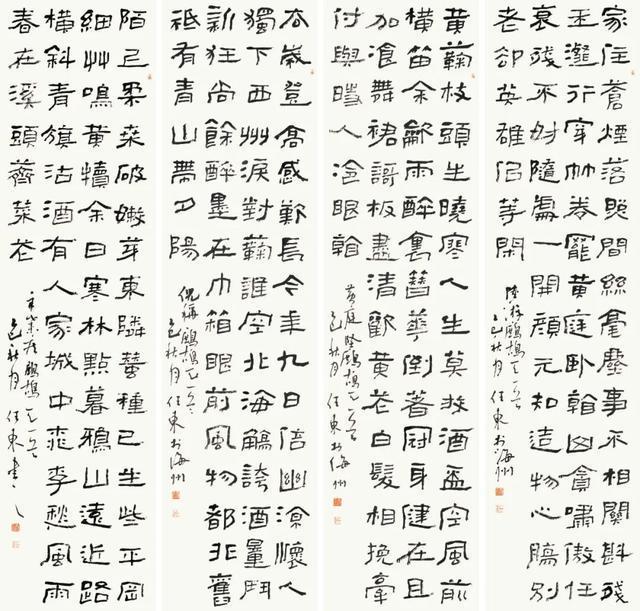 家住蒼煙落照間絲毫塵事不相關斟殘
玉瀣行穿竹卷罷黃庭臥看山貪嘯傲任
衰殘不妨隨處一開顏元知造物心腸別
老卻英雄似等閑
陸游鷓鴣天一首
乙巳秋月任東書於海州
黃菊枝頭生曉寒人生莫放酒盃空風前
橫笛斜龡雨醉裏簪華倒著冠身健在且
加飡舞裙歌板盡清歡黃花白髮相挽牽
付與時人冷眼看
黃庭堅鷓鴣天一首
乙巳秋月任東書於海州
去歲登高感歎長今年九日倍涼懷人
獨下西州淚對菊誰空北海觴誇酒量鬥
新狂尚餘醉墨在巾箱眼前風物都非舊
祗有青山帶夕陽
倪稱鷓鴣天一首
乙巳秋月任東書於海州
陌上柔桑破嫩芽東鄰蠶種已生些平岡
細艸鳴黃犢斜日寒林點暮鴉山遠近路
橫斜青旗沽酒有人家城中桃李愁風雨
春在溪頭薺菜花
辛棄疾鷓鴣天一首
乙巳秋月任東書